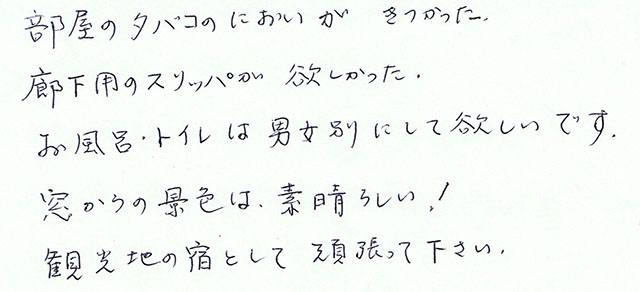 部屋のタバコのにおいが きつかった.
廊下用のスリッパが 欲しかった.
お風呂・トイレは男女別にして欲しいです.
窓からの景色は、素晴らしい!
観光地の宿として 頑張って下さい.